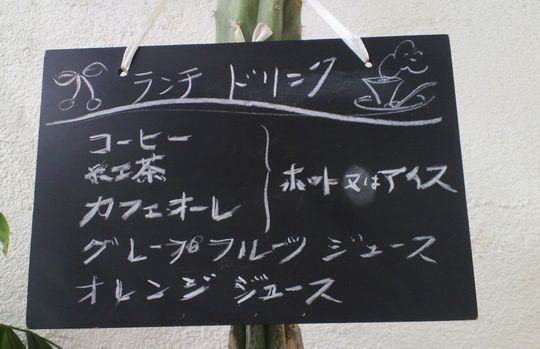 ランチ ドリンク
コーヒー
紅茶
カフェオーレ
ホット又はアイス
グレープフルーツ ジュース
オレンジ ジュース